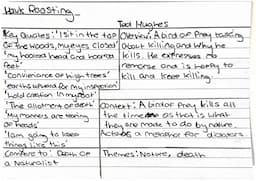 Hawk Roosting
Ted Hughes
Key Quotes: 'I sit in the top
of the woods, my eyes closed'
'my hooked head and hooked
feet'
'Convenience of high trees'
'earths upward for my inspection'
'I hold creation in my foot'
'The allotment of death'
'My manners are tearing
of heads'
'I am going to keep
things like this'
Compare to: Death Of
a Naturalist
Overview: A bird of Prey talking
about killing and why he
kills. He expresses no
remorse and is happy to
kill and keep killing.
Context: A bird of prey kills all
the time as that is what
they are made to do by nature.
Acts as a metaphor for dictators
Themes: Nature, death